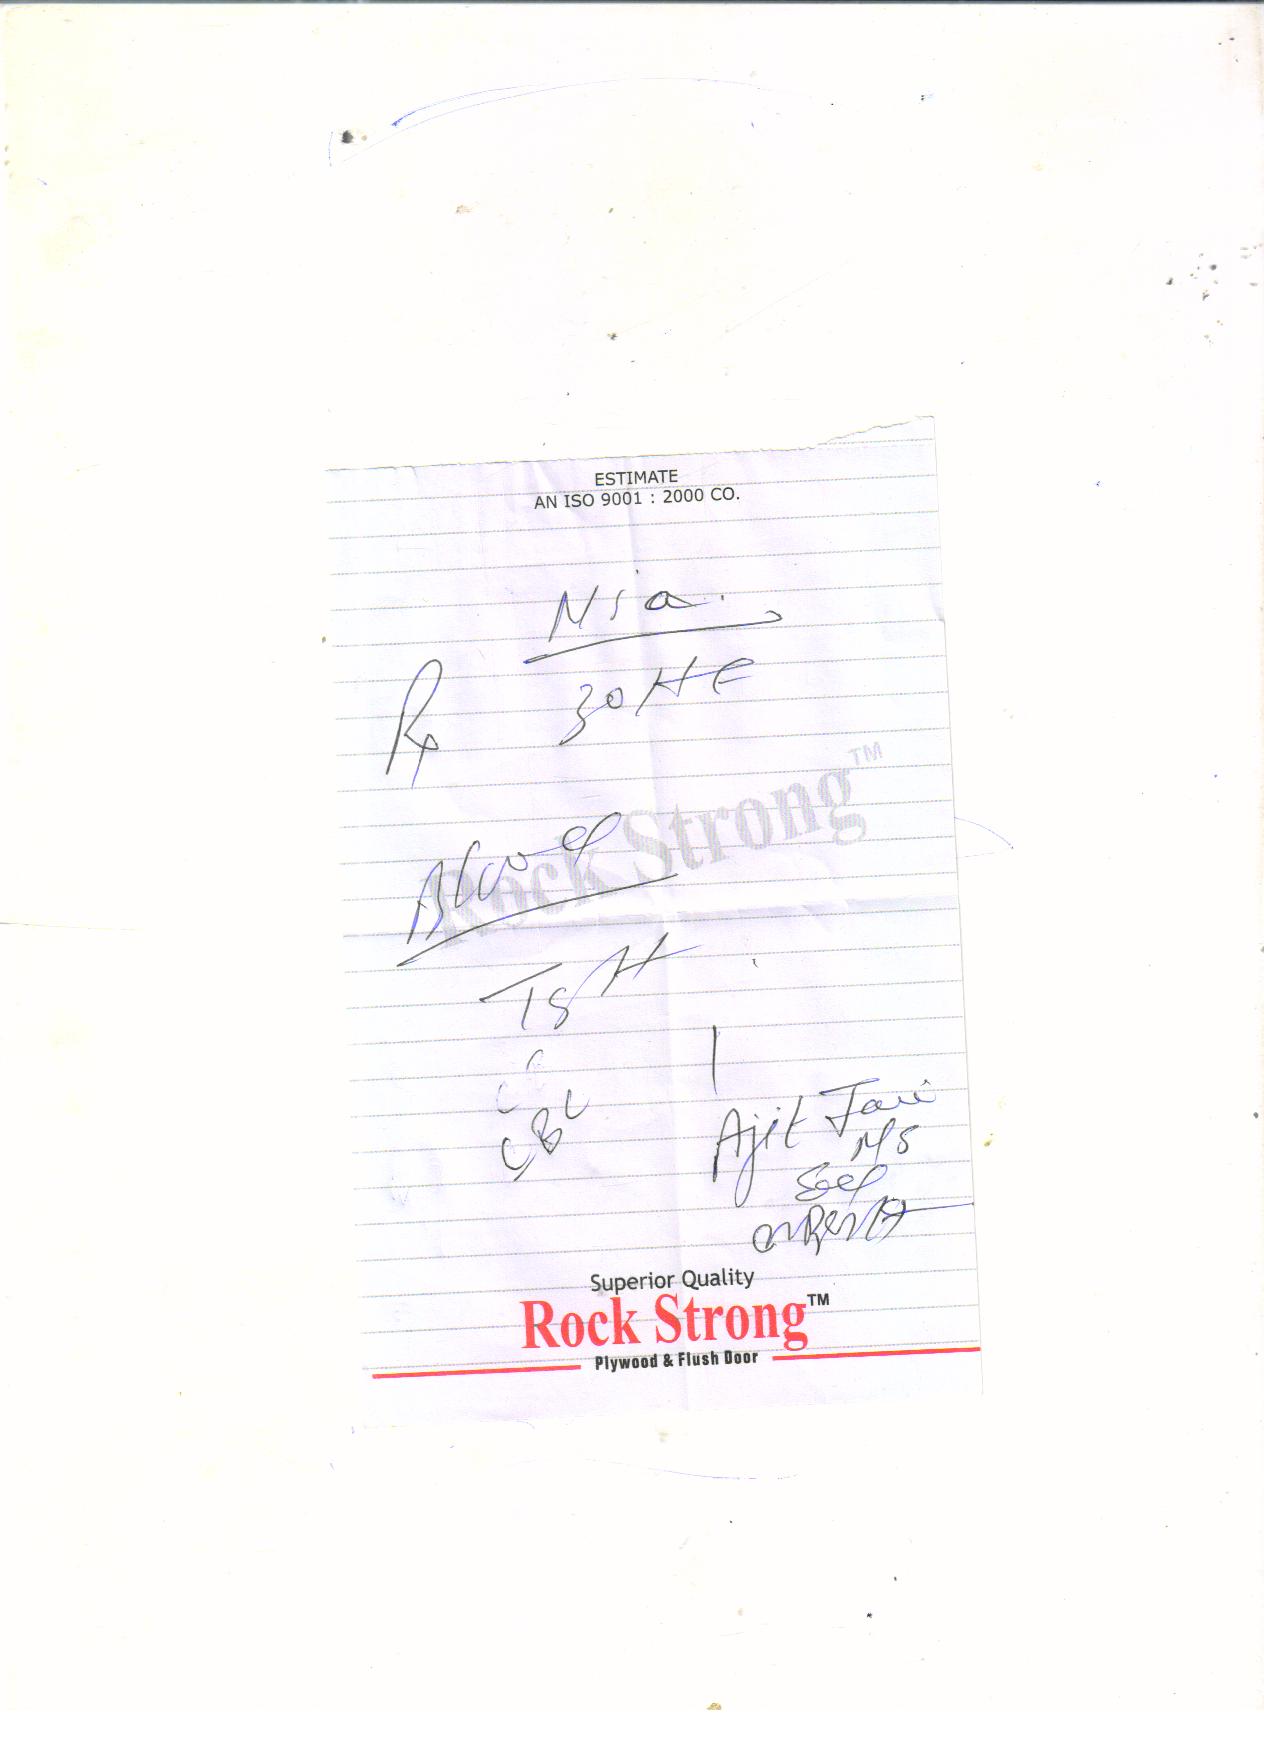 ESTIMATE
AN ISO 9001 : 2000 CO.
Nia.
Rx
30 H F
Rock Strong™
Blood
TSH
CBC
Ajit Jain
MS
Superior Quality
Rock Strong™
Plywood & Flush Door